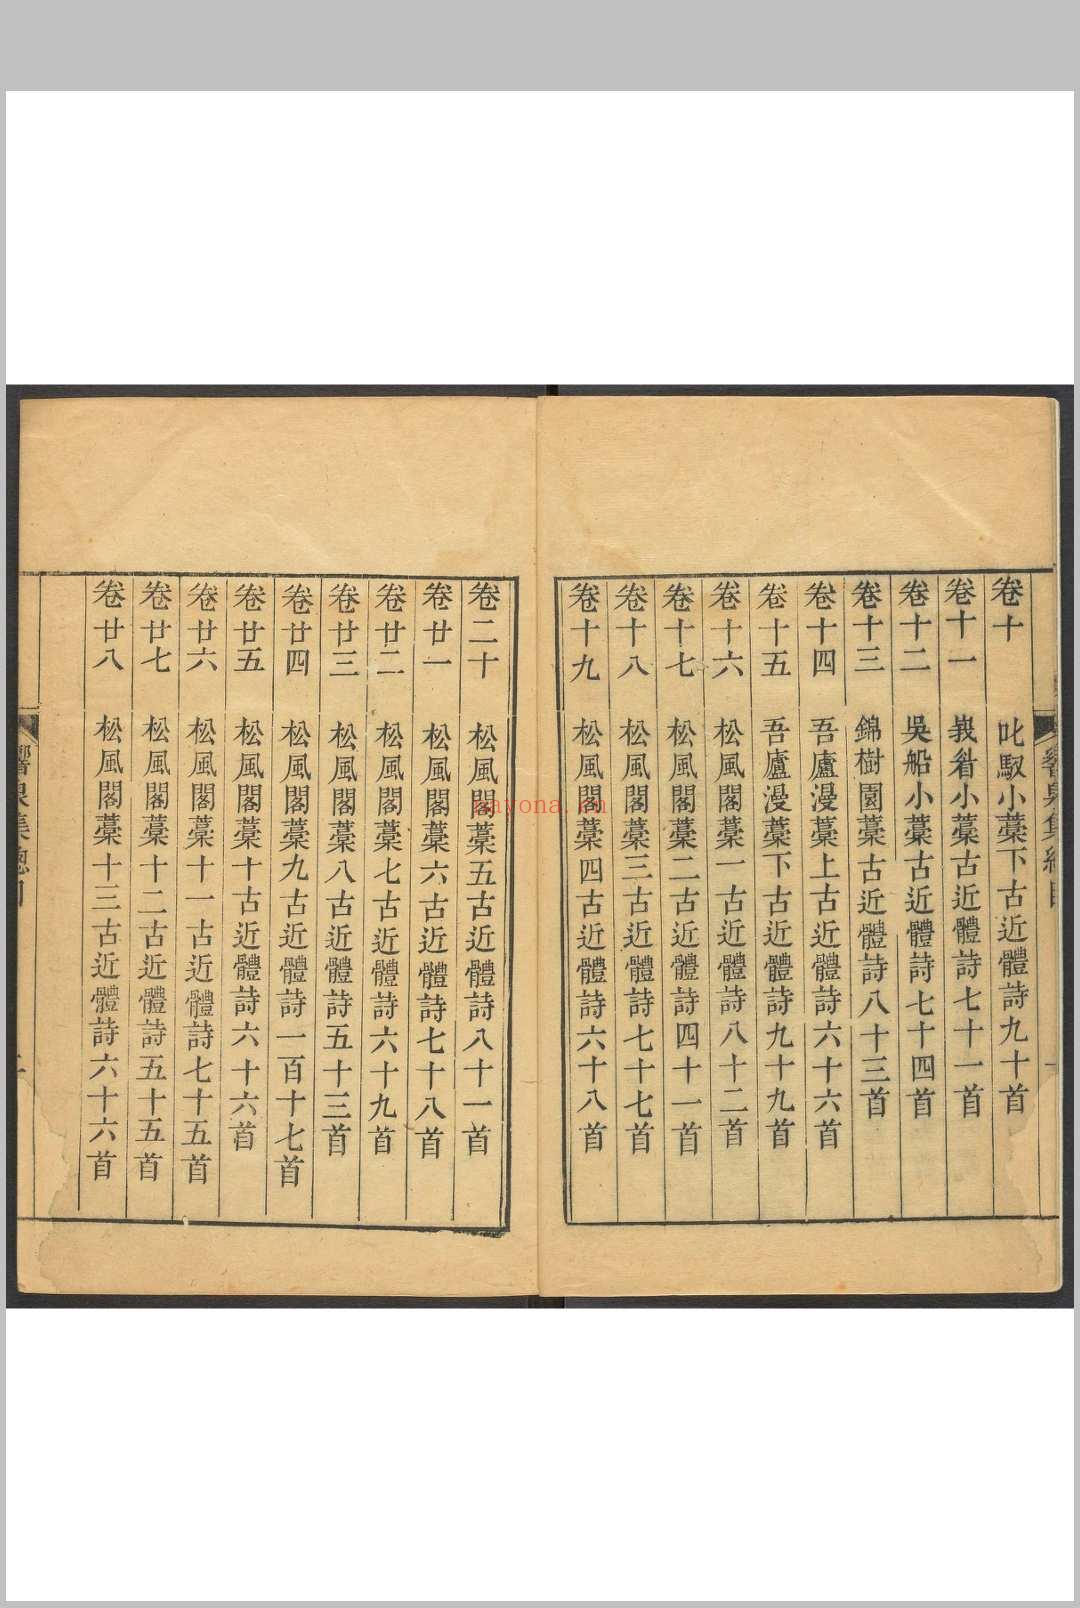 卷十 叱馭小藁下古近體詩九十首
卷十一 峩䝨小藁古近體詩七十一首
卷十二 吳船小藁古近體詩七十四首
卷十三 錦樹園藁古近體詩八十三首
卷十四 吾廬漫藁上古近體詩六十六首
卷十五 吾廬漫藁下古近體詩九十九首
卷十六 松風閣藁一古近體詩八十二首
卷十七 松風閣藁二古近體詩四十一首
卷十八 松風閣藁三古近體詩七十七首
卷十九 松風閣藁四古近體詩六十八首
卷二十 松風閣藁五古近體詩八十一首
卷廿一 松風閣藁六古近體詩七十八首
卷廿二 松風閣藁七古近體詩六十九首
卷廿三 松風閣藁八古近體詩五十三首
卷廿四 松風閣藁九古近體詩一百十七首
卷廿五 松風閣藁十古近體詩六十六首
卷廿六 松風閣藁十一古近體詩七十五首
卷廿七 松風閣藁十二古近體詩五十五首
卷廿八 松風閣藁十三古近體詩六十六首
響泉集總目
nayona.cn